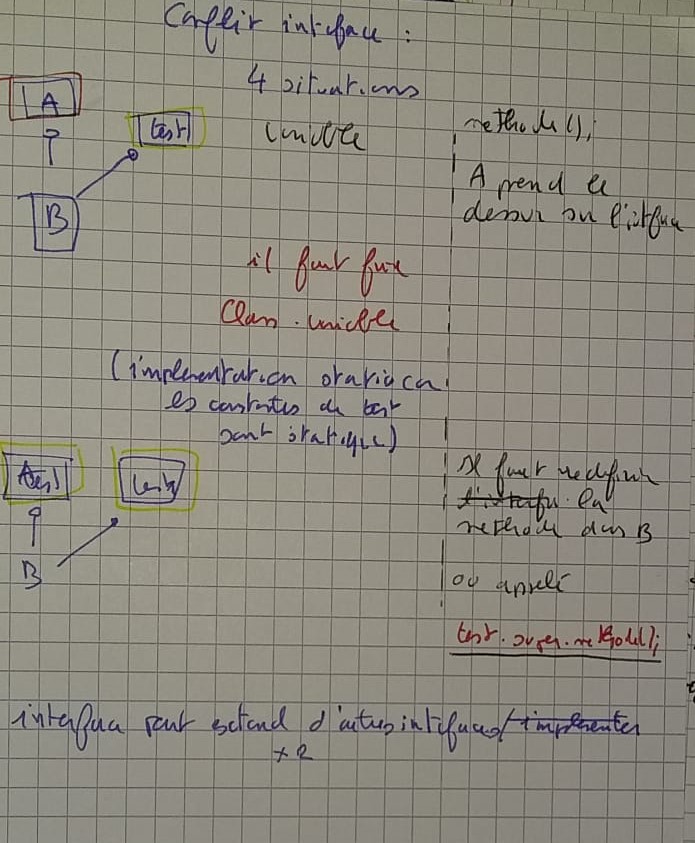 Conflit interface :
4 situations
A
test
methode();
A prend le
dessus sur l'interface
B
il faut faire
Class.
(implementation statique car
les constantes de test
sont statique)
test1
test2
Il faut redefinir
la
methode dans B
B
ou appelé
test.super.methode();
interface peut extend d'autres interfaces/implementer
+2